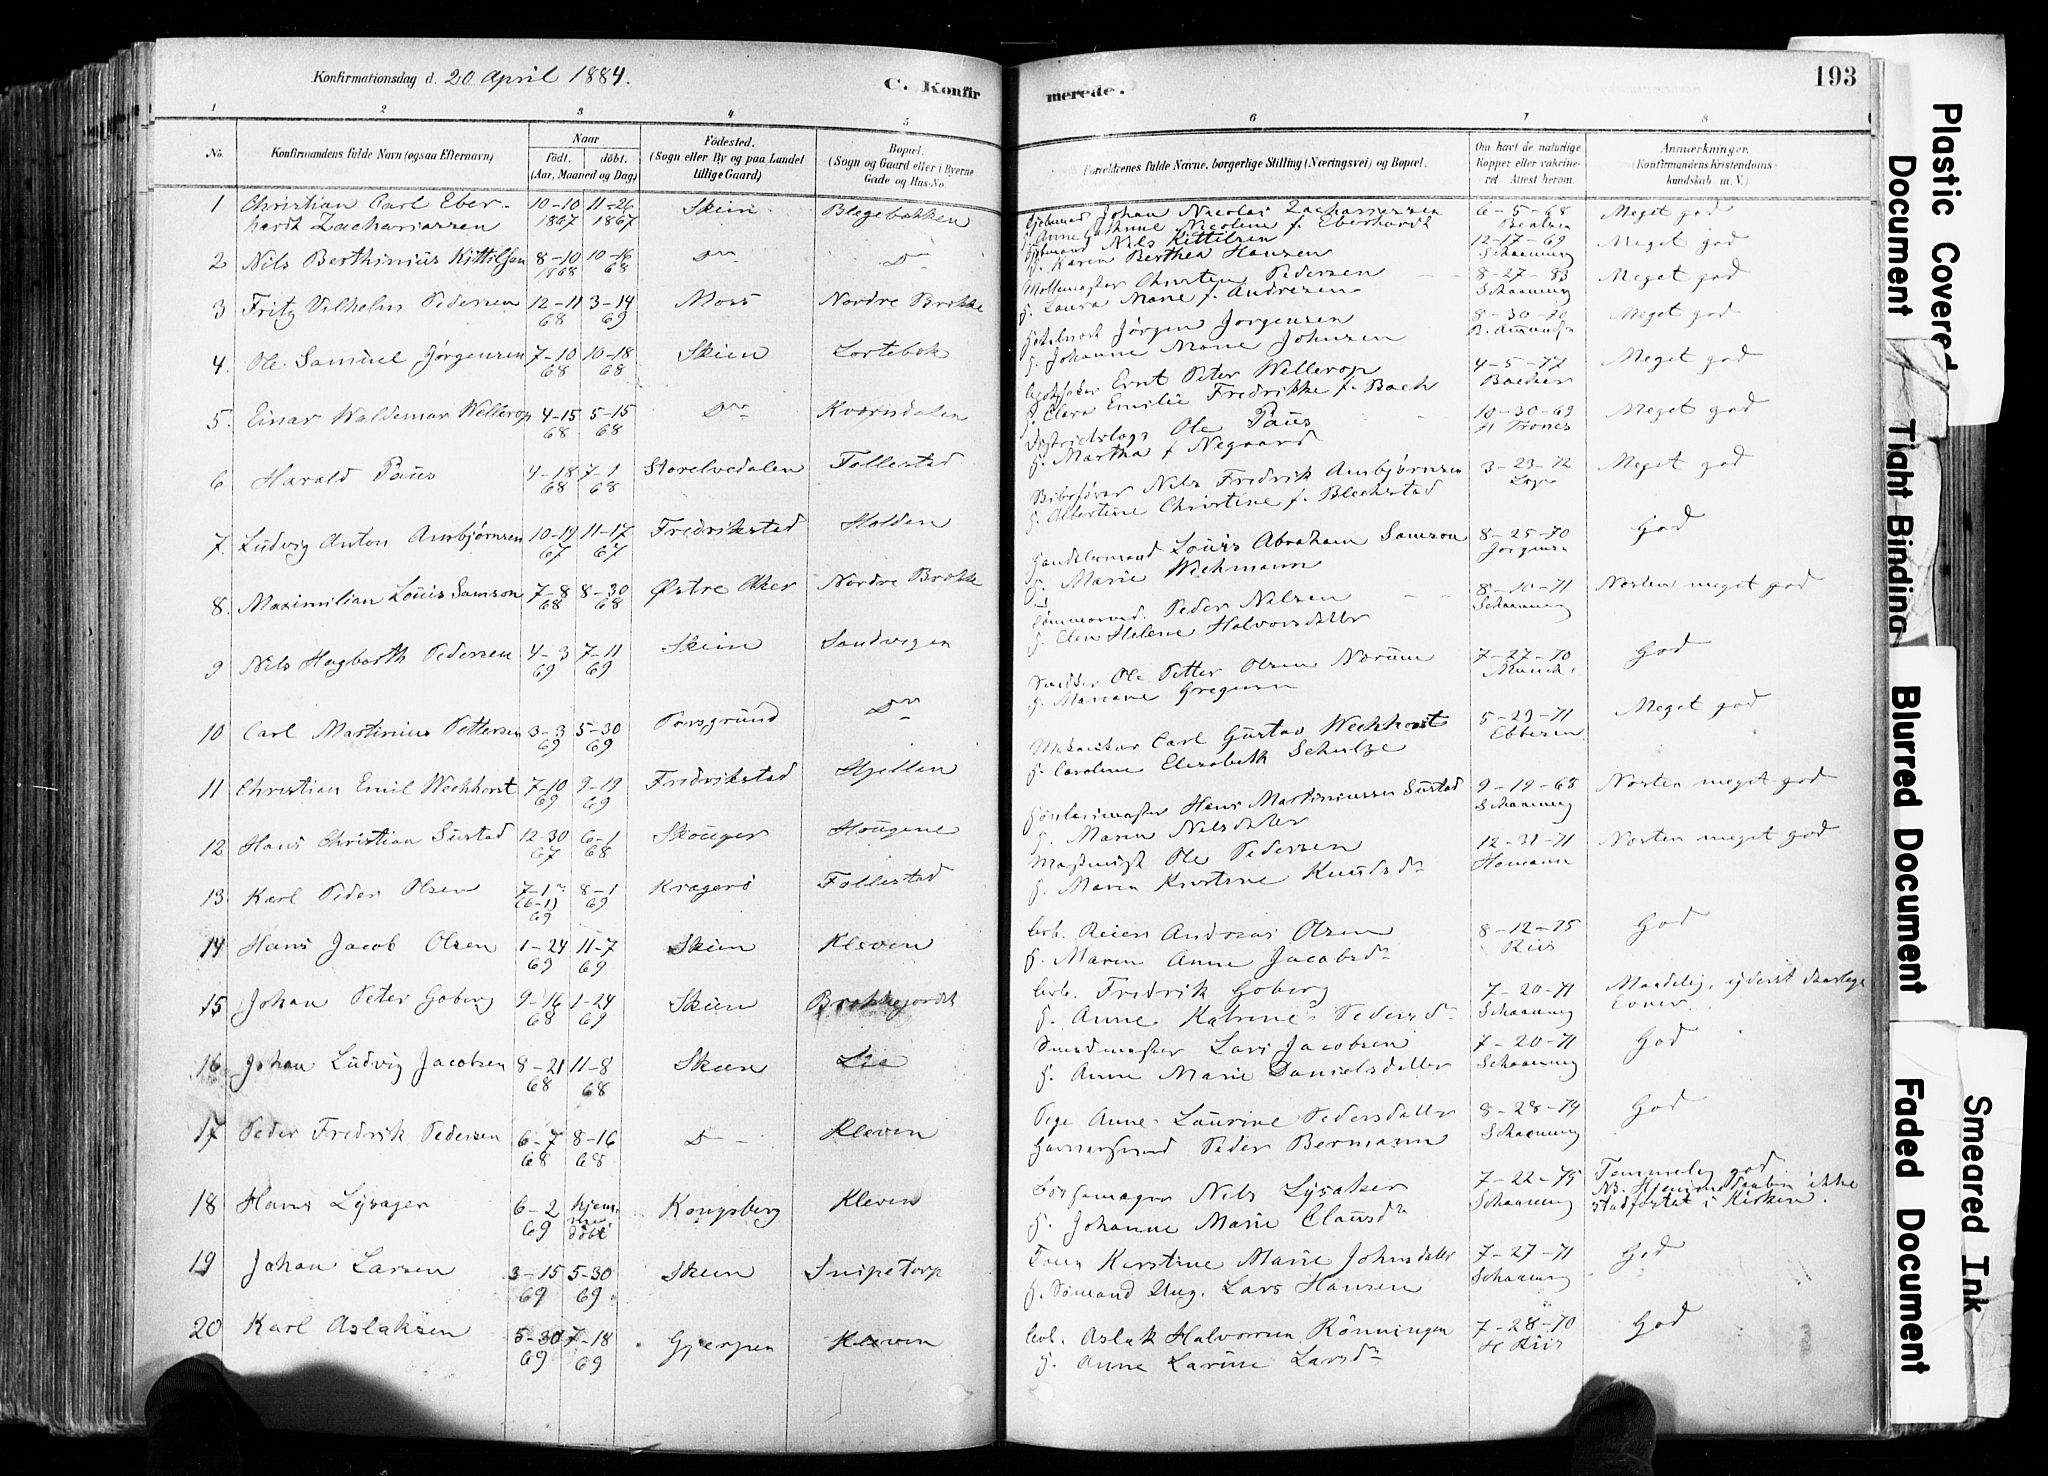 Konfirmationsdag d. 20 April 1884.
C. Konfirmerede.
193
1 2 3 4 5 6 7 8
No.
Konfirmandens fulde Navn (ogsaa Efternavn)
Naar
født. døbt.
(Aar, Maaned og Dag)
Fødested.
(Sogn eller By og paa Landet
tillige Gaard)
Bopæl.
(Sogn og Gaard eller i Byerne
Gade og Hus-No.
Forældrenes fulde Navne, borgerlige Stilling (Næringsvei) og Bopæl.
Om havt de naturlige
Kopper eller vakcineret
Attest herom.
Anmærkninger.
(Konfirmandens Kristendomskundskab
m. V.)
1 Christian Carl Eber- 10-10 11-26 Skien Blegebakken Johan Nicolai Zachariassen 6-5-68 Meget god
hardt Zachariassen 1867 1867 Nicoline f. Eberhardt
2 Nils Berthinius Kittilsen 8-10 10-16 Do Do Nils Kittilsen 12-17-69 Meget god
1868 68 Karen Berthea Hansen Schaanung
3 Fritz Vilhelm Pedersen 12-11 3-14 Moss Nordre Brekke Møllemester Christen Pedersen 8-27-83 Meget god
68 69 H. Laura Marie f. Andresen Schaanung
4. Ole Samuel Jørgensen 7-10 10-18 Skien Lortebok Jørgen Jørgensen 8-30-70 Meget god
68 68 H. Johanne Marie Johnsen
5. Einar Waldemar Wellerop 4-15 5-15 Do Kværndalen Ernt Peter Wellerop 4-5-77 Meget god
68 68 H. Clara Emilie Fredrikke f. Bach Backer
6 Harald Paus 4-18 7-1 Storelvedalen Follestad Distriktslæge Ole Paus 10-30-69 Meget god
68 68 H. Martha f Negaard
7. Ludvig Anton Ambjørnsen 10-19 11-17 Fredrikstad Holden Nils Fredrik Ambjørnsen 3-23-72 Meget god
67 67 H. Albertine Christine f. Blechstad
8. Maximilian Louis Samson 7-8 8-30 Østre Aker Nordre Brekke Handelsmand Louis Abraham Samson 8-25-70 God
68 68 H. Marie Wichmann Jørgensen
9 Nils Hagbarth Pedersen 4-3 7-11 Skien Sandvigen Tømmermd. Peder Nilsen 8-10-71 Næsten meget god
69 69 H. Elen Helene Halvorsdatter Schaanung
10 Carl Martinius Pettersen 3-3 5-30 Porsgrund Do Snedker Ole Petter Olsen Nørum 7-27-70 God
69 69 H. Mariane Gregersen Munch
11 Christian Emil Wechhorst 7-10 9-19 Fredrikstad Hjellen Mekaniker Carl Gustav Wechhorst 5-29-71 Meget god
69 69 H. Caroline Elisabeth Schulze Ebbesen
12 Hans Christian Sustad 12-30 6-1 Skouger Hougene Hans Martiniussen Sustad 9-19-68 Næsten meget god
67 68 H. Maren Nilsdatter Schaanung
13 Karl Peder Olsen 7-1 8-1 Kragerø Follestad Maskinist Ole Pedersen 12-31-71 Næsten meget god
(6-1) 69 69 H. Maren Kirstine Knudsdr Homann
14 Hans Jacob Olsen 1-24 11-7 Skien Kleven Arb. Reier Andreas Olsen 8-12-75 God
69 69 H. Maren Anne Jacobsdr Riis
15 Johan Peter Goberg 9-16 1-24 Skien Brekkejordet Arb. Fredrik Goberg 7-20-71 Maadelig, yderst daarlige
68 69 H. Anne Katrine Pedersdr Schaanung Evner.
16 Johan Ludvig Jacobsen 8-21 11-8 Skien Lie Smedmester Lars Jacobsen 7-20-71 God
68 68 H. Anne Marie Danielsdatter Schaanung
17 Peder Fredrik Pedersen 6-7 8-16 D- Kleven Pige Anne Laurine Pedersdatter 8-28-79 God
68 68 Peder Bermann Schaanung
18 Hans Lysager 6-2 hjem- Kongsberg Kleven Børsemager Nils Lysaker 7-22-75 Temmelig god
69 me døbt H. Johanne Marie Clausdr Schaanung NB. Hjemmedaaben ikke
stadfæstet i Kirken.
19 Johan Larsen 3-15 5-30 Skien Snipetorp Kirstine Marie Johnsdatter 7-27-71 God
69 69 Sømand Ung. Lars Hansen Schaanung
20 Karl Aslaksen 5-30 7-18 Gjerpen Kleven Arb. Aslak Halvorsen Rønningen 7-28-70 God
69 69 H. Anne Larine Larsdr H Riis
Plastic Covered Document
Tight Binding
Blurred Document
Faded Document
Smeared Ink